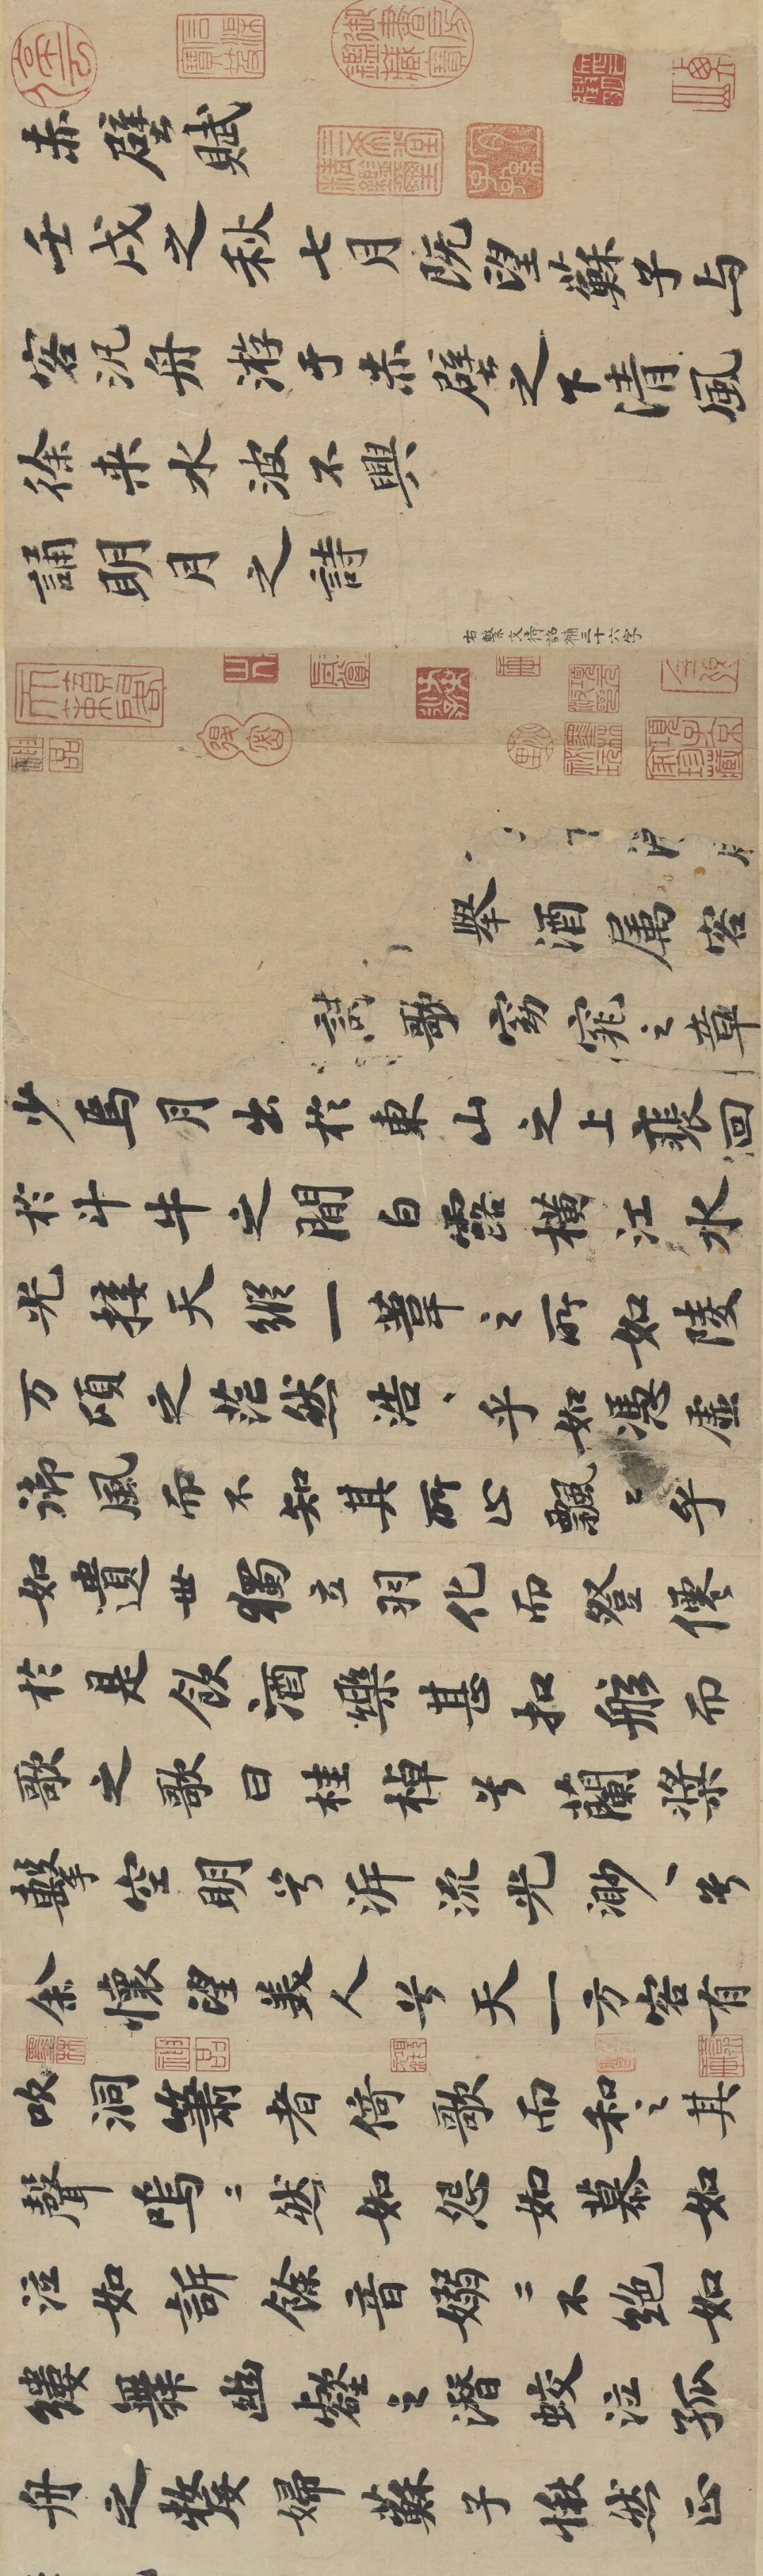 赤壁賦
壬戌之秋七月既望蘇子与
客汎舟游于赤壁之下清風
徐来水波不興
誦明月之詩
右繫文待詔補三十六字
舉酒属客
歌窈窕之章
少焉月出於東山之上裴回
於斗牛之間白露橫江水
光接天縱一葦之所如陵
万頃之茫然浩〻乎如憑虛
御風而不知其所止飄〻乎
如遺世獨立羽化而登僊
於是飲酒樂甚扣舷而
歌之歌曰桂棹兮蘭槳
擊空明兮泝流光渺〻兮
余懷望美人兮天一方客有
吹洞簫者倚歌而和之其
聲嗚〻然如怨如慕如
泣如訴餘音嫋〻不絕如
縷舞幽壑之潛蛟泣孤
舟之嫠婦蘇子愀然正